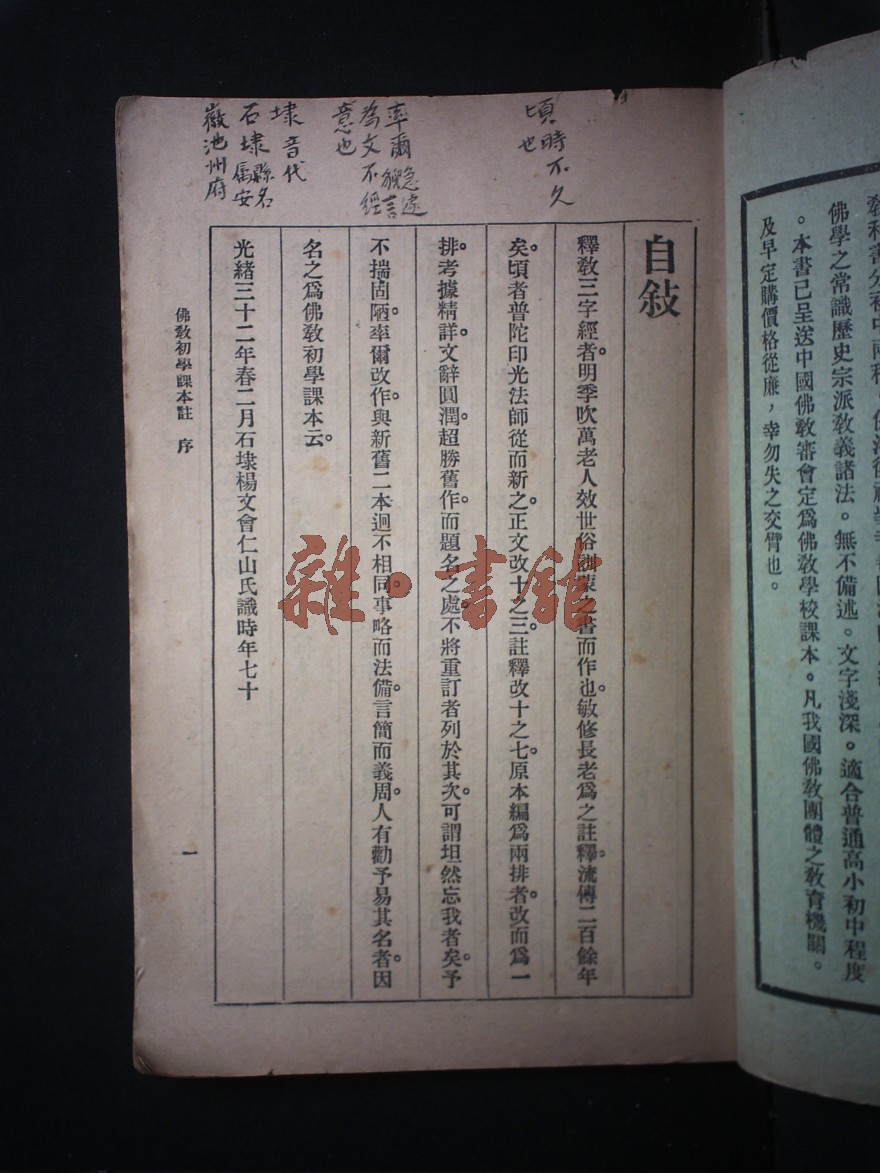 教科書分初中兩種。
佛學之常識歷史宗派教義諸法。無不備述。文字淺深。適合普通高小初中程度
。本書已呈送中國佛教審會定爲佛教學校課本。凡我國佛教團體之教育機關。
及早定購價格從廉，幸勿失之交臂也。
頃時不久
也
率爾急遽
猶言
為文不經
意也
埭音代
石埭縣名
屬安
徽池州府
自敍
釋教三字經者。明季吹萬老人效世俗訓蒙之書而作也。敏修長老爲之註釋。流傳二百餘年
矣。頃者普陀印光法師從而新之。正文改十之三。註釋改十之七。原本編爲兩排者。改而爲一
排。考據精詳。文辭圓潤。超勝舊作。而題名之處。不將重訂者列於其次。可謂坦然忘我者矣。予
不揣固陋。率爾改作。與新舊二本迥不相同。事略而法備。言簡而義周。人有勸予易其名者。因
名之爲佛教初學課本云。
光緒三十二年春二月石埭楊文會仁山氏識時年七十
佛教初學課本註　序
一
雜·書館